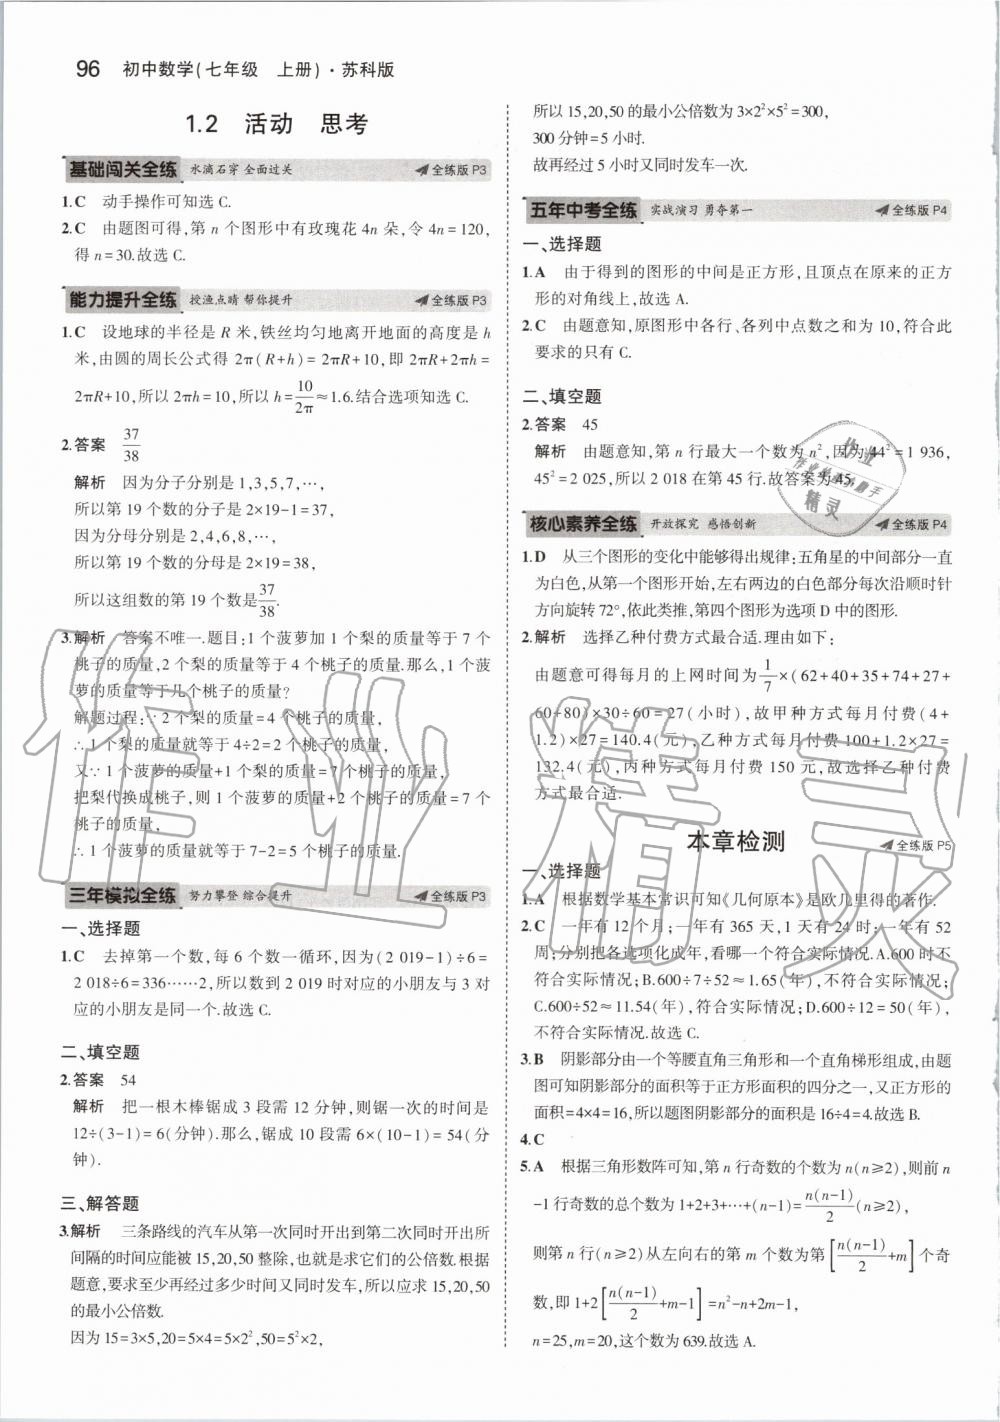 96 初中数学(七年级 上册)·苏科版
1.2 活动 思考
基础闯关全练 水滴石穿 全面过关 全练版 P3
1.C 动手操作可知选 C.
2.C 由题图可得,第 n 个图形中有玫瑰花 4n 朵,令 4n=120,
得 n=30.故选 C.
能力提升全练 授渔点睛 帮你提升 全练版 P3
1.C 设地球的半径是 R 米,铁丝均匀地离开地面的高度是 h
米,由圆的周长公式得 2π(R+h)=2πR+10,即 2πR+2πh=
2πR+10,所以 2πh=10,所以 h=10/2π≈1.6.结合选项知选 C.
2.答案 37/38
解析 因为分子分别是 1,3,5,7,…,
所以第 19 个数的分子是 2×19-1=37,
因为分母分别是 2,4,6,8,…,
所以第 19 个数的分母是 2×19=38,
所以这组数的第 19 个数是37/38.
3.解析 答案不唯一.题目:1 个菠萝加 1 个梨的质量等于 7 个
桃子的质量,2 个梨的质量等于 4 个桃子的质量.那么,1 个菠
萝的质量等于几个桃子的质量?
解题过程:∵2 个梨的质量=4 个桃子的质量,
∴1 个梨的质量就等于 4÷2=2 个桃子的质量,
又∵1 个菠萝的质量+1 个梨的质量=7 个桃子的质量,
把梨代换成桃子,则 1 个菠萝的质量+2 个桃子的质量=7 个
桃子的质量,
∴1 个菠萝的质量就等于 7-2=5 个桃子的质量.
三年模拟全练 努力攀登 综合提升 全练版 P3
一、选择题
1.C 去掉第一个数,每 6 个数一循环,因为(2 019-1)÷6=
2 018÷6=336……2,所以数到 2 019 时对应的小朋友与 3 对
应的小朋友是同一个.故选 C.
二、填空题
2.答案 54
解析 把一根木棒锯成 3 段需 12 分钟,则锯一次的时间是
12÷(3-1)=6(分钟).那么,锯成 10 段需 6×(10-1)=54(分
钟).
三、解答题
3.解析 三条路线的汽车从第一次同时开出到第二次同时开出所
间隔的时间应能被 15,20,50 整除,也就是求它们的公倍数.根据
题意,要求至少再经过多少时间又同时发车,所以应求 15,20,50
的最小公倍数.
因为 15=3×5,20=5×4=5×2²,50=5²×2,
所以 15,20,50 的最小公倍数为 3×2²×5²=300,
300 分钟=5 小时.
故再经过 5 小时又同时发车一次.
五年中考全练 实战演习 勇夺第一 全练版 P4
一、选择题
1.A 由于得到的图形的中间是正方形,且顶点在原来的正方
形的对角线上,故选 A.
2.C 由题意知,原图形中各行、各列中点数之和为 10,符合此
要求的只有 C.
二、填空题
2.答案 45
解析 由题意知,第 n 行最大一个数为 n²,因为 44²=1 936,
45²=2 025,所以 2 018 在第 45 行.故答案为 45.
核心素养全练 开放探究 感悟创新 全练版 P4
1.D 从三个图形的变化中能够得出规律:五角星的中间部分一直
为白色,从第一个图形开始,左右两边的白色部分每次沿顺时针
方向旋转 72°,依此类推,第四个图形为选项 D 中的图形.
2.解析 选择乙种付费方式最合适.理由如下:
由题意可得每月的上网时间为1/7×(62+40+35+74+27+
60+80)×30÷60=27(小时),故甲种方式每月付费(4+
1.2)×27=140.4(元),乙种方式每月付费 100+1.2×27=
132.4(元),丙种方式每月付费 150 元,故选择乙种付费
方式最合适.
本章检测 全练版 P5
一、选择题
1.A 根据数学基本常识可知《几何原本》是欧几里得的著作.
2.C 一年有 12 个月;一年有 365 天,1 天有 24 时;一年有 52
周,分别把各选项化成年,看哪一个符合实际情况.A.600 时不
符合实际情况;B.600÷7÷52≈1.65(年),不符合实际情况;
C.600÷52≈11.54(年),符合实际情况;D.600÷12=50(年),
不符合实际情况.故选 C.
3.B 阴影部分由一个等腰直角三角形和一个直角梯形组成,由题
图可知阴影部分的面积等于正方形面积的四分之一,又正方形的
面积=4×4=16,所以题图阴影部分的面积是 16÷4=4.故选 B.
4.C
5.A 根据三角形数阵可知,第 n 行奇数的个数为 n(n≥2),则前 n
-1 行奇数的总个数为 1+2+3+…+(n-1)=n(n-1)/2(n≥2),
则第 n 行(n≥2)从左向右的第 m 个数为第[n(n-1)/2+m]个奇
数,即 1+2[n(n-1)/2+m-1]=n²-n+2m-1,
n=25,m=20,这个数为 639.故选 A.
作业精灵
作业
精灵